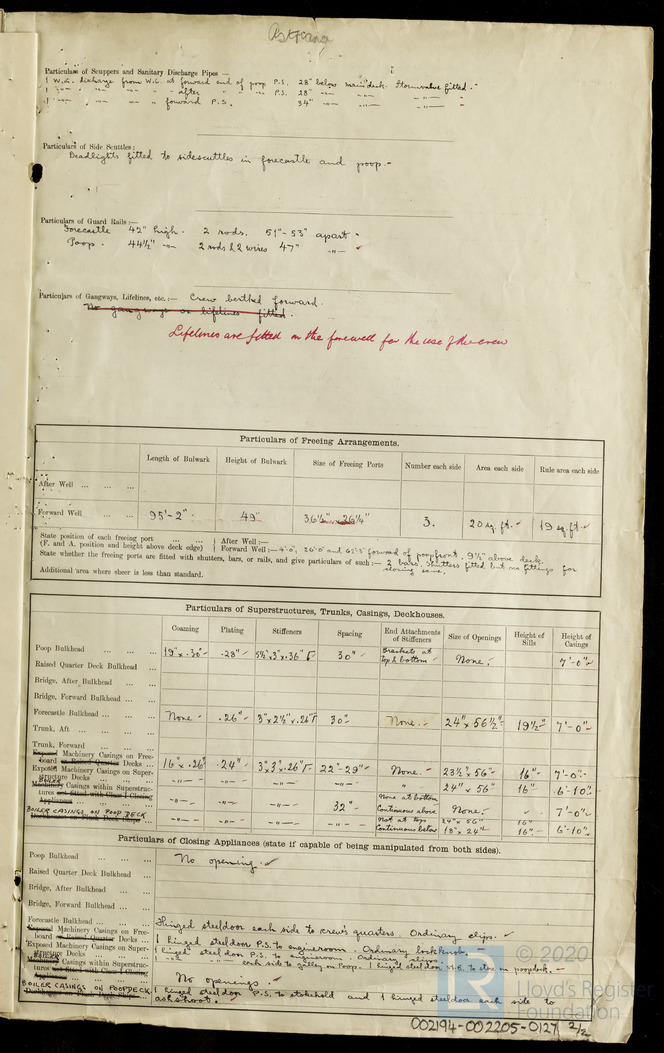 Particulars of Scuppers and Sanitary Discharge Pipes —
1 W.C. discharge from W.C. at forward end of poop P.S. 28" below maindeck. Stormvalve fitted.-
1 -"- " -"- " after " -"- P.S. 28" -"- -"- -"-
1 -"- " -"- " forward P.S. 34" -"- -"- -"-
Particulars of Side Scuttles:
Deadlights fitted to sidescuttles in forecastle and poop.-
Particulars of Guard Rails:—
Forecastle 42" high. 2 rods. 51"-53" apart -
Poop. 44½" -"- 2 rods & 2 wires 47" -"-
Particulars of Gangways, Lifelines, etc.:— Crew berthed forward.
No gangways or lifelines fitted.
Lifelines are fitted in the forewell for the use of the crew
Particulars of Freeing Arrangements.
Length of Bulwark Height of Bulwark Size of Freeing Ports Number each side Area each side Rule area each side
After Well
Forward Well 95'-2" 49" 36½" × 26¼" 3. 20 sq. ft. 19 sq. ft.
State position of each freeing port After Well:—
(F. and A. position and height above deck edge) Forward Well:— 4'-0", 26'-0" and 62'-3" forward of poopfront. 9½" above deck.
State whether the freeing ports are fitted with shutters, bars, or rails, and give particulars of such:— 2 bars. Shutters fitted but no fittings for
closing same.
Additional area where sheer is less than standard.
Particulars of Superstructures, Trunks, Casings, Deckhouses.
Coaming Plating Stiffeners Spacing End Attachments of Stiffeners Size of Openings Height of Sills Height of Casings
Poop Bulkhead 19" × .30" .28" 5½" × 3" × .36" 30" Brackets at top & bottom None. 7'-0"
Raised Quarter Deck Bulkhead
Bridge, After Bulkhead
Bridge, Forward Bulkhead
Forecastle Bulkhead None .26" 3" × 2½" × .26" 30" None. 24" × 56½" 19½" 7'-0"
Trunk, Aft
Trunk, Forward
Exposed Machinery Casings on Freeboard or Raised Quarter Decks 16" × .26" .24" 3" × 3" × .26" 22"-29" None. 23½" × 56" 16" 7'-0"
Exposed Machinery Casings on Superstructure Decks -"- -"- -"- -"- " 24" × 56" 16" 6'-10"
BOILER
Machinery Casings within Superstructures not fitted with Class 1 Closing Appliances -"- -"- -"- 32" None at bottom Continuous above None. - 7'-0"
BOILER CASINGS ON POOP DECK -"- -"- -"- -"- Not at top Continuous below 24" × 56" 18" × 24" 16" 16" 6'-10"
Particulars of Closing Appliances (state if capable of being manipulated from both sides).
Poop Bulkhead No opening.
Raised Quarter Deck Bulkhead
Bridge, After Bulkhead
Bridge, Forward Bulkhead
Forecastle Bulkhead Hinged steeldoor each side to crew's quarters. Ordinary clips.
Exposed Machinery Casings on Freeboard or Raised Quarter Decks 1 hinged steeldoor P.S. to engineroom. Ordinary lock & knob.
Exposed Machinery Casings on Superstructure Decks 1 hinged steeldoor P.S. to engineroom. Ordinary clips.
1 -"- -"- each side to galley on Poop. 1 hinged steeldoor to store on poopdeck.
BOILER
Machinery Casings within Superstructures not fitted with Class 1 Closing Appliances No openings.
BOILER CASINGS ON POOPDECK 1 hinged steeldoor P.S. to stokehold and 1 hinged steeldoor each side to
ashshoot.
© 2020
Lloyd's Register
Foundation
002194-002205-0127 2/2